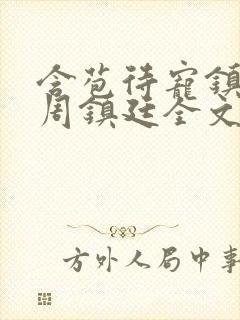 含苞待宠镇
周镇廷全文
方外人局中事